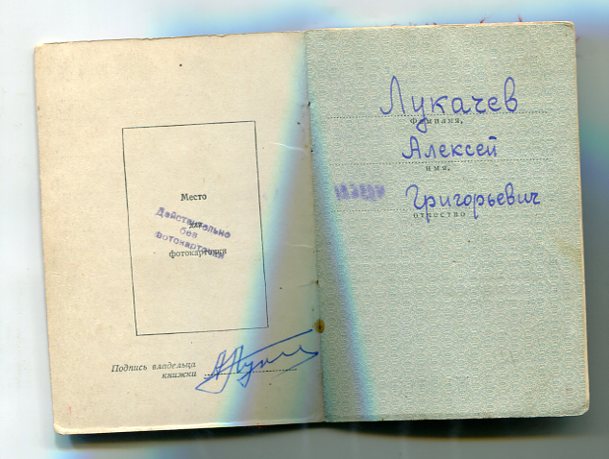 Место
для
фотокарточки
Действительно
без
фотокарточки
Подпись владельца
книжки
Лукачев
фамилия,
Алексей
имя,
Григорьевич
отчество